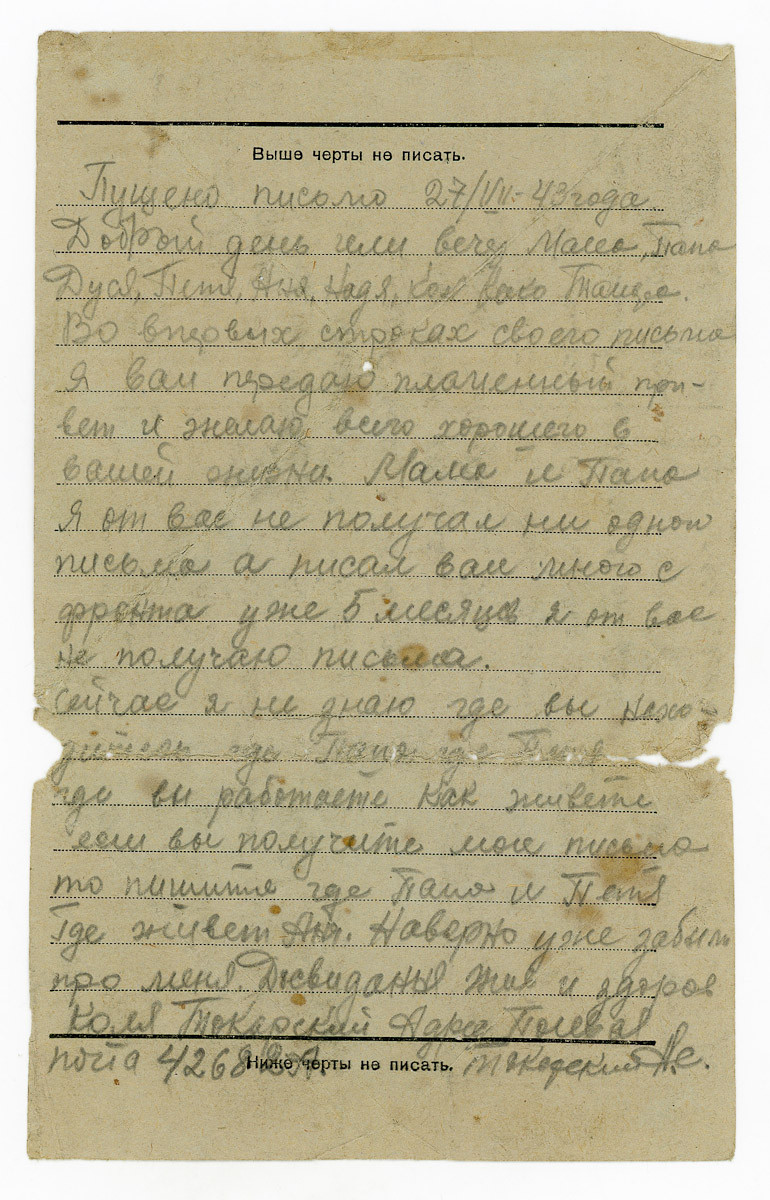 Выше черты не писать.
Пущено письмо 27/VII-43 года
Добрый день или вечер Мама, Папа
Дуся, Петя, Аня, Надя, Коля
Во первых строках своего письма
Я вам передаю пламенный при-
вет и желаю всего хорошего в
вашей жизни. Мама и Папа
Я от вас не получал ни одного
письма а писал вам много с
фронта уже 5 месяцев я от вас
не получаю письма.
Сейчас я не знаю где вы нахо-
дитесь где Папа где Петя
где вы работаете как живете
если вы получите мое письмо
то пишите где Папа и Петя
Где живет Аня. Наверно уже забыли
про меня. Досвиданья жив и здоров
Коля Токарский Адрес Полевая
почта 42682 А. Токарский Н.С.
Ниже черты не писать.